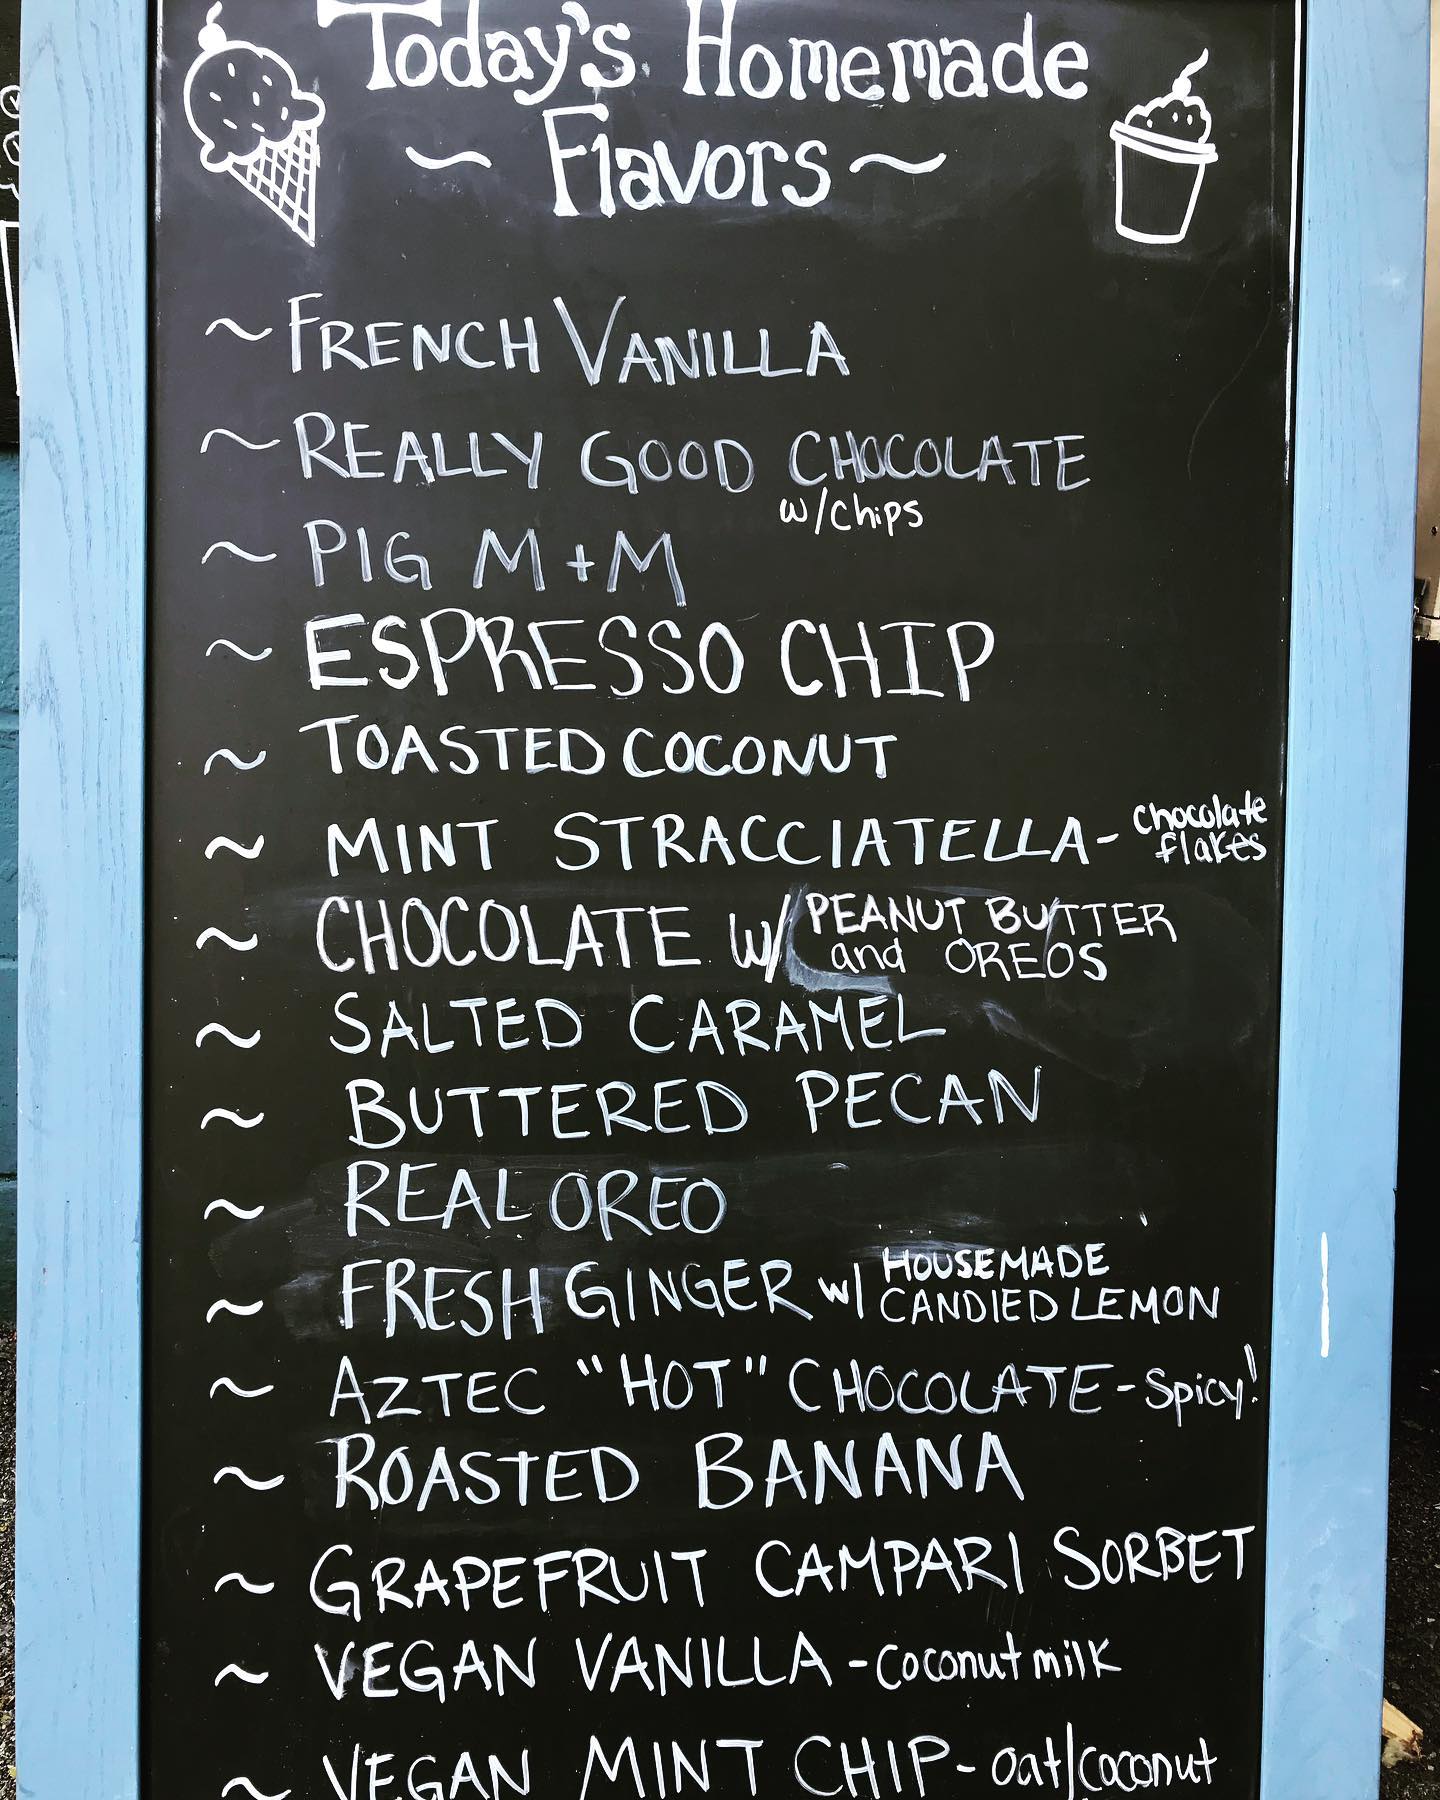 Today's Homemade
~ Flavors ~
~ FRENCH VANILLA
~ REALLY GOOD CHOCOLATE
w/chips
~ PIG M+M
~ ESPRESSO CHIP
~ TOASTED COCONUT
~ MINT STRACCIATELLA - chocolate
flakes
~ CHOCOLATE w/ PEANUT BUTTER
and OREOS
~ SALTED CARAMEL
~ BUTTERED PECAN
~ REAL OREO
~ FRESH GINGER w/ HOUSEMADE
CANDIED LEMON
~ AZTEC "HOT" CHOCOLATE - Spicy!
~ ROASTED BANANA
~ GRAPEFRUIT CAMPARI SORBET
~ VEGAN VANILLA - coconut milk
~ VEGAN MINT CHIP - oat/coconut